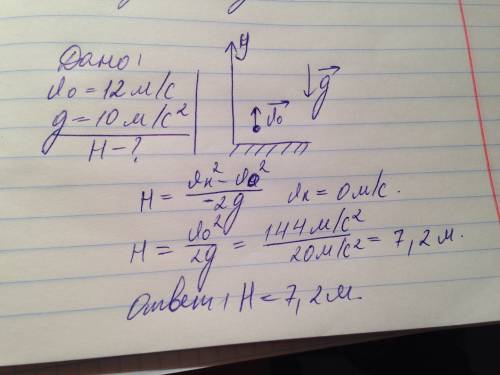 Дано:
v₀ = 12 м/с
g = 10 м/с²
H - ?
y
v₀
g
H = (vк² - v₀²) / -2g    vк = 0 м/с.
H = v₀² / 2g = 144 м/с² / 20 м/с² = 7,2 м.
Ответ: H = 7,2 м.